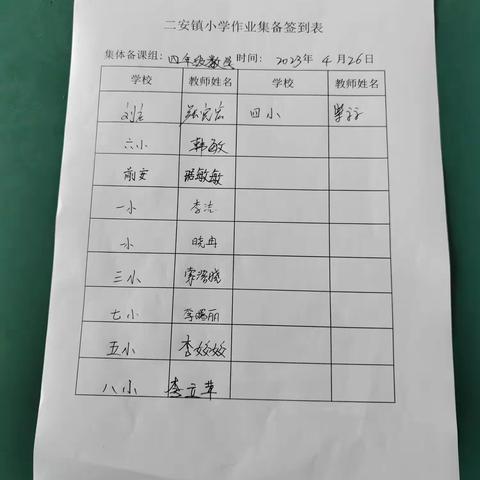 二安镇小学作业集备签到表
集体备课组：四年级数学 时间：2023年 4 月 26日
学校 教师姓名 学校 教师姓名
刘庄 四小
六小 韩敏
前安 敏敏
一小 李洁
小 晓冉
三小 晓
七小 李 丽
五小 李姣姣
八小 李立革